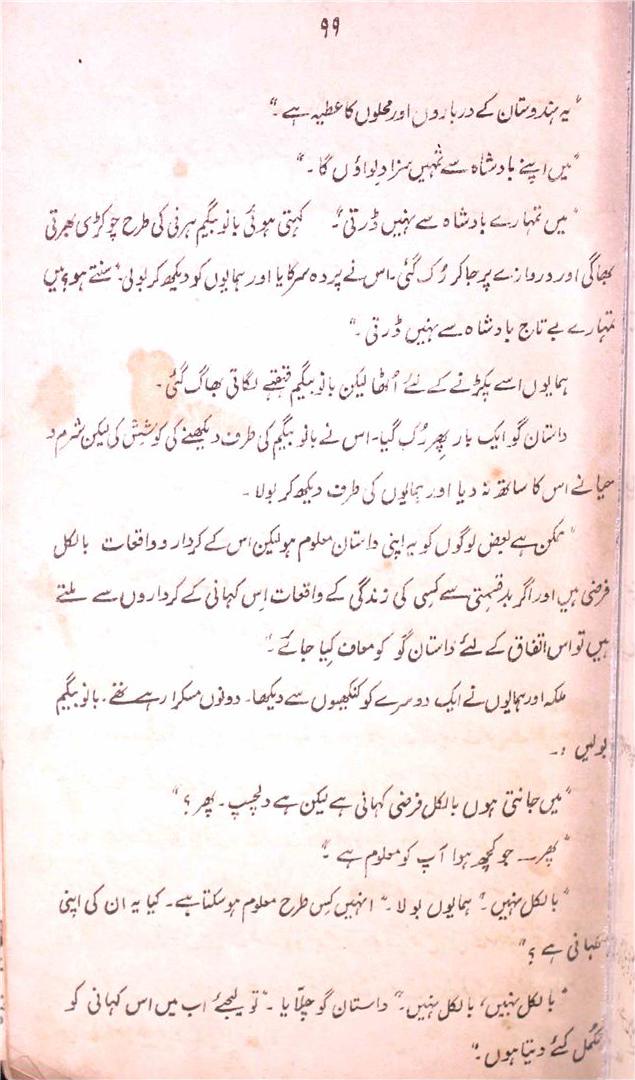 ۹۹
"یہ ہندوستان کے درباروں اور محلوں کا عطیہ ہے۔"
"میں اپنے بادشاہ سے تمہیں سزا دلواؤں گا۔"
"میں تمہارے بادشاہ سے نہیں ڈرتی"۔ کہتی ہوئی بانو بیگم ہرنی کی طرح چوکڑی بھرتی
بھاگی اور دروازے پر جا کر رُک گئی۔ اس نے پردہ سرکایا اور ہمایوں کو دیکھ کر بولی۔ "سنتے ہو؟ میں
تمہارے بے تاج بادشاہ سے نہیں ڈرتی۔"
ہمایوں اسے پکڑنے کے لئے اُٹھا لیکن بانو بیگم قہقہے لگاتی بھاگ گئی۔
داستان گو ایک بار پھر رُک گیا۔ اس نے بانو بیگم کی طرف دیکھنے کی کوشش کی لیکن شرم و
حیا نے اس کا ساتھ نہ دیا اور ہمایوں کی طرف دیکھ کر بولا۔
"ممکن ہے بعض لوگوں کو یہ اپنی داستان معلوم ہو لیکن اس کے کردار و واقعات بالکل
فرضی ہیں اور اگر بدقسمتی سے کسی کی زندگی کے واقعات اِس کہانی کے کرداروں سے ملتے
ہیں تو اس اتفاق کے لئے داستان گو کو معاف کیا جائے۔"
ملکہ اور ہمایوں نے ایک دوسرے کو کنکھیوں سے دیکھا۔ دونوں مسکرا رہے تھے۔ بانو بیگم
بولیں :۔
"میں جانتی ہوں بالکل فرضی کہانی ہے لیکن ہے دلچسپ۔ پھر؟"
"پھر۔۔ جو کچھ ہوا آپ کو معلوم ہے۔"
"بالکل نہیں۔" ہمایوں بولا۔ "انہیں کِس طرح معلوم ہو سکتا ہے۔ کیا یہ ان کی اپنی
کہانی ہے؟"
"بالکل نہیں، بالکل نہیں۔" داستان گو چلّایا۔ "تو لیجئے اب میں اس کہانی کو
مکمل کئے دیتا ہوں۔"